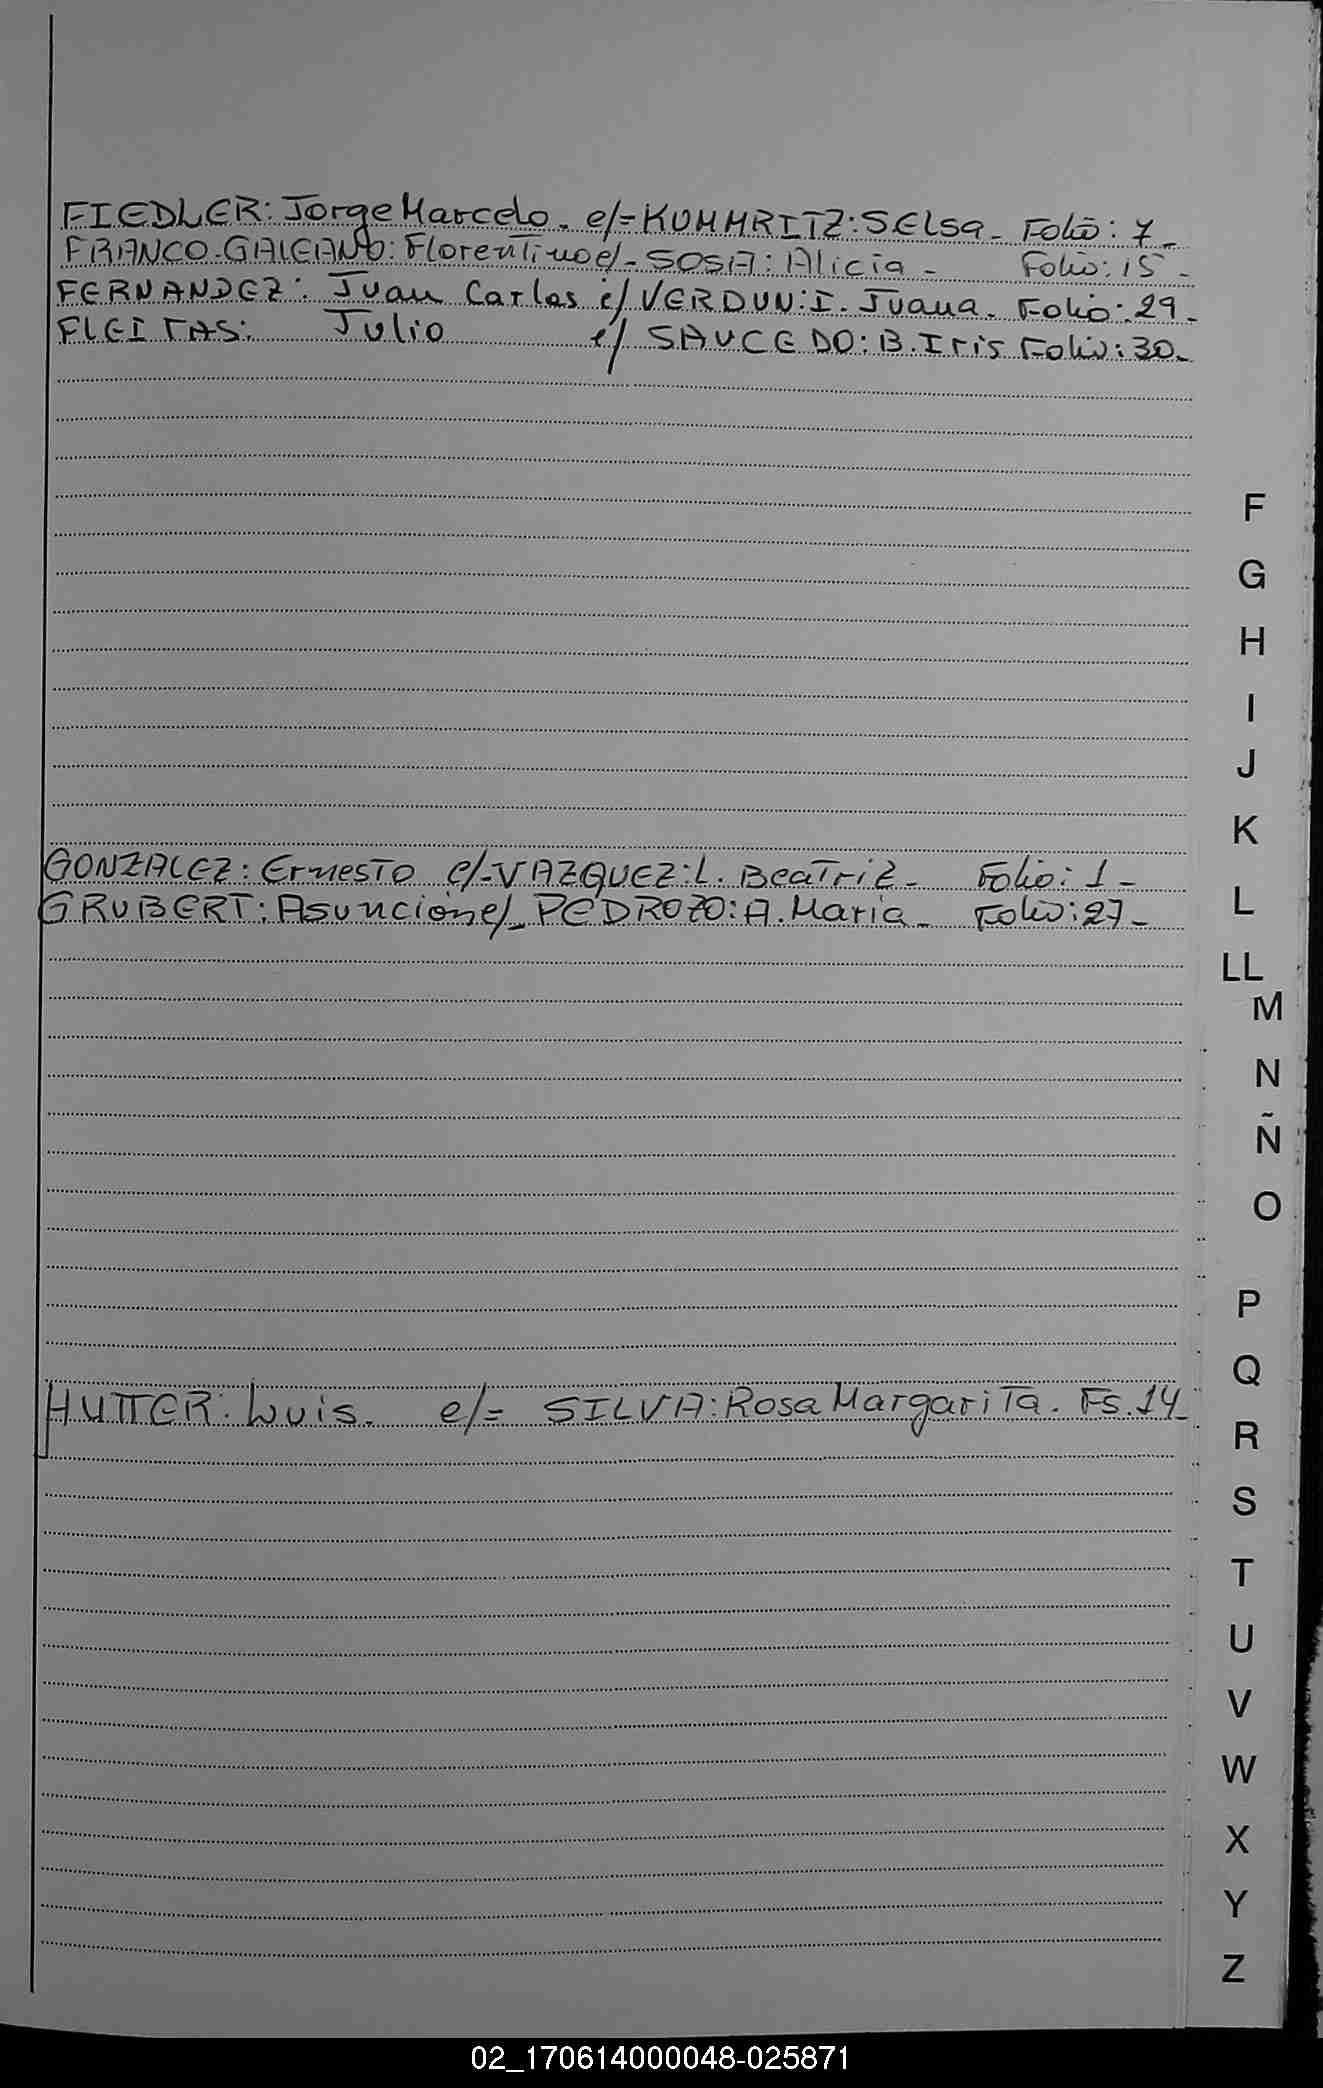 FIEDLER: Jorge Marcelo. e/= KUMMRITZ: SElsa. Folio: 7_
FRANCO-GALEANO: Florentino e/- SOSA: Alicia - Folio: 15-
FERNANDEZ: Juan Carlos e/ VERDUN: I. Juana. Folio: 29-
FLEITAS: Julio e/ SAUCEDO: B. Iris Folio: 30-
F
G
H
I
J
K
GONZALEZ: Ernesto e/- VAZQUEZ: L. Beatriz- Folio: 1-
GRUBERT: Asuncion e/- PEDROZO: A. Maria- Folio: 27-
L
LL
M
N
Ñ
O
P
Q
HUTTER: Luis. e/= SILVA: Rosa Margarita. Fs. 14-
R
S
T
U
V
W
X
Y
Z
02_170614000048-025871